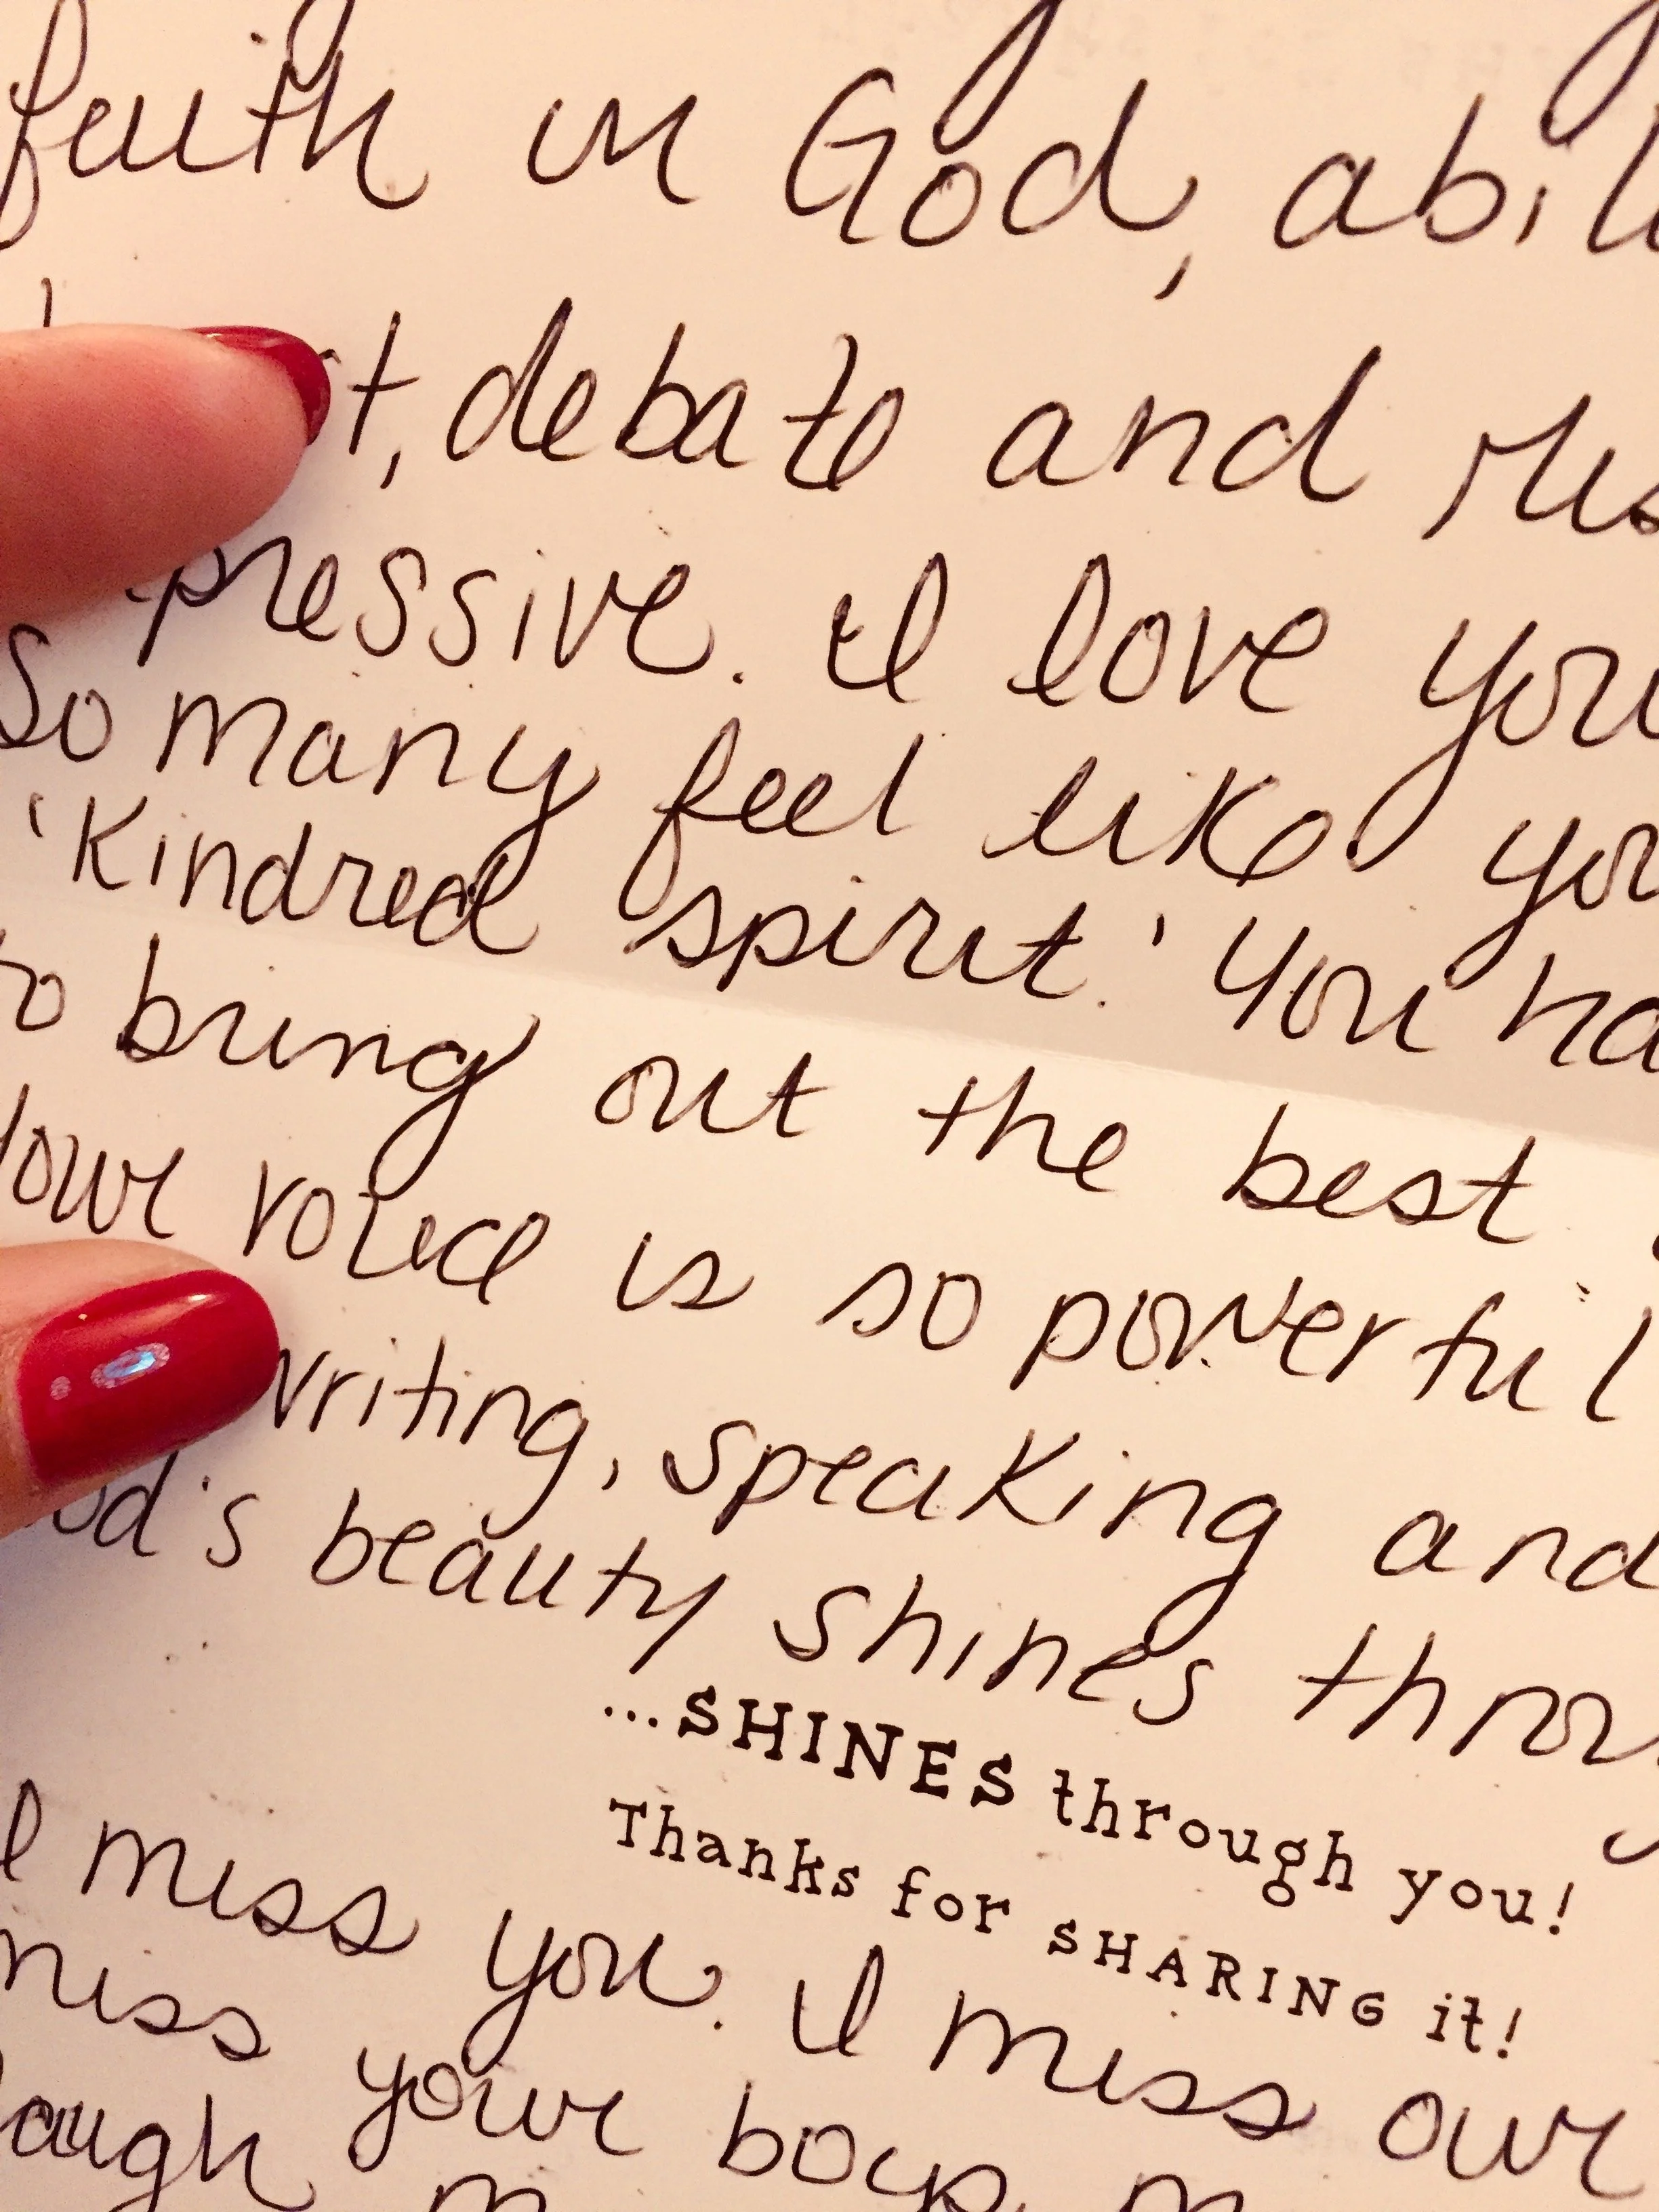 faith in God, abil
t, debate and res
pressive. I love you
So many feel like you
'Kindred spirit.' You ha
to bring out the best
Your voice is so powerful
writing, speaking and
od's beauty shines throu
...SHINES through you!
Thanks for SHARING it!
I miss you. I miss our
miss your boys
augh